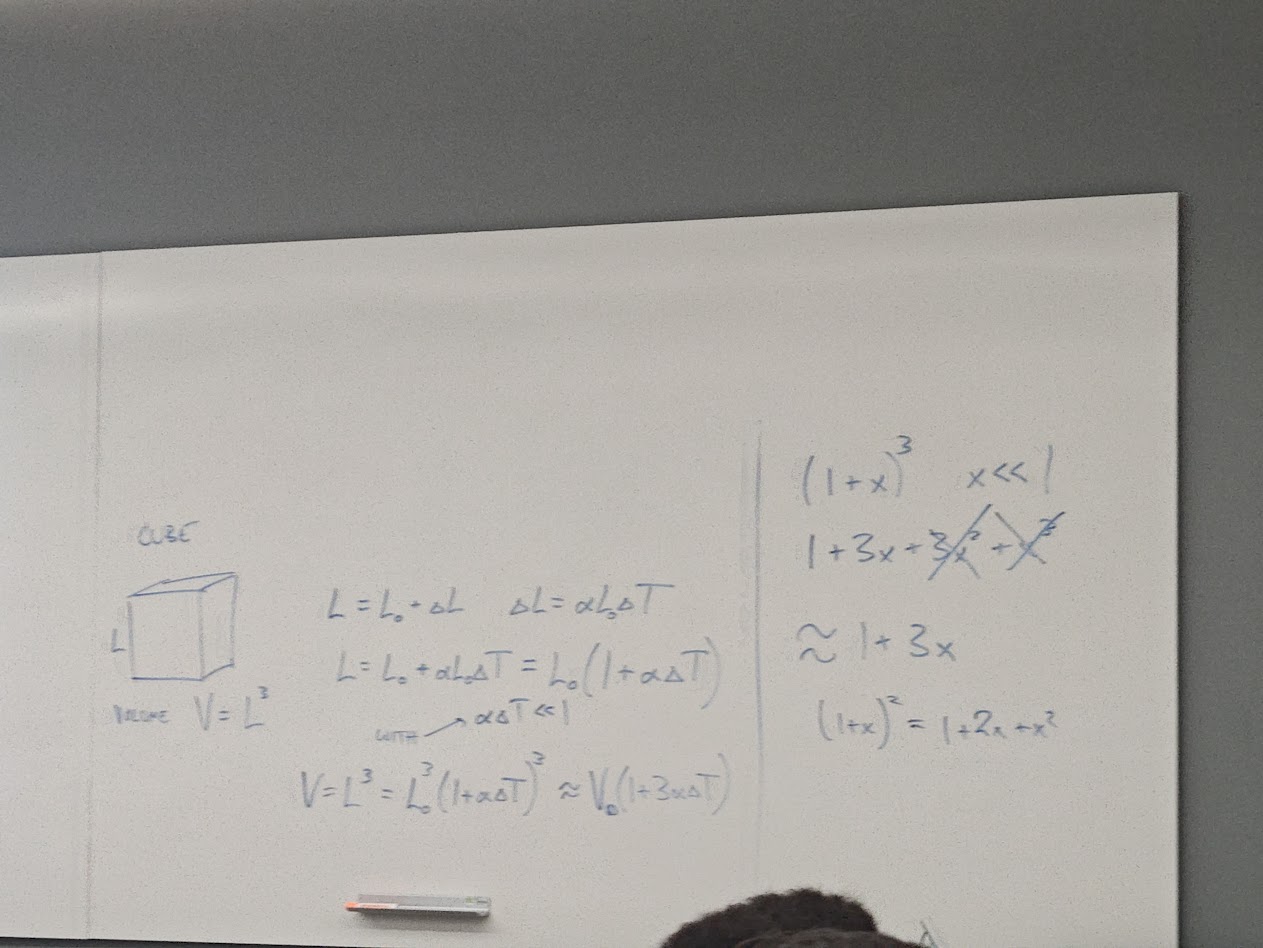 CUBE
L
VOLUME V = L³
L = L₀ + ΔL ΔL = αL₀ΔT
L = L₀ + αL₀ΔT = L₀(1 + αΔT)
WITH αΔT << 1
V = L³ = L₀³(1 + αΔT)³ ≈ V₀(1 + 3αΔT)
(1 + x)³ x << 1
1 + 3x + 3x² + x³
≈ 1 + 3x
(1+x)² = 1 + 2x + x²